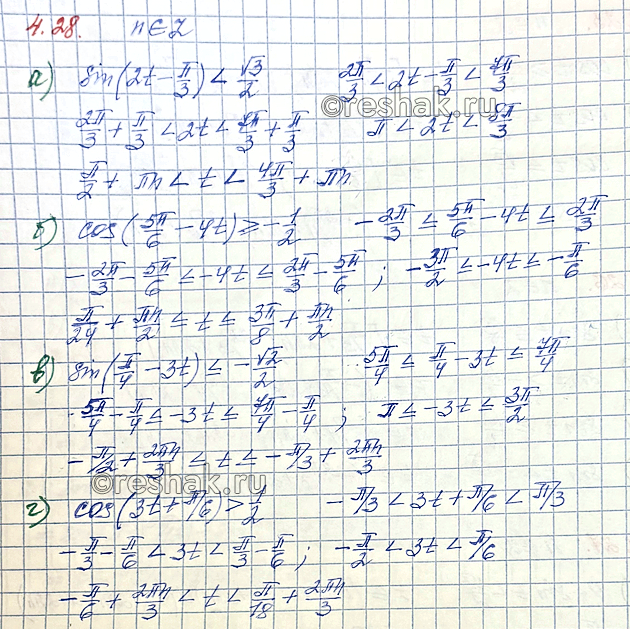 4.28. n∈Z
а) sin(2t - π/3) < √3/2 2π/3 < 2t - π/3 < 7π/3
2π/3 + π/3 < 2t < 7π/3 + π/3 π < 2t < 8π/3
π/2 + πn < t < 4π/3 + πn.
©reshak.ru
б) cos(5π/6 - 4t) ≥ -1/2 -2π/3 ≤ 5π/6 - 4t ≤ 2π/3
-2π/3 - 5π/6 ≤ -4t ≤ 2π/3 - 5π/6 ; -3π/2 ≤ -4t ≤ -π/6
π/24 + πn/2 ≤ t ≤ 3π/8 + πn/2
в) sin(π/4 - 3t) ≤ -√2/2 5π/4 ≤ π/4 - 3t ≤ 7π/4
5π/4 - π/4 ≤ -3t ≤ 7π/4 - π/4 ; π ≤ -3t ≤ 3π/2
-π/2 + 2πn/3 ≤ t ≤ -π/3 + 2πn/3
©reshak.ru
г) cos(3t + π/6) > 1/2 -π/3 < 3t + π/6 < π/3
-π/3 - π/6 < 3t < π/3 - π/6 ; -π/2 < 3t < π/6
-π/6 + 2πn/3 < t < π/18 + 2πn/3